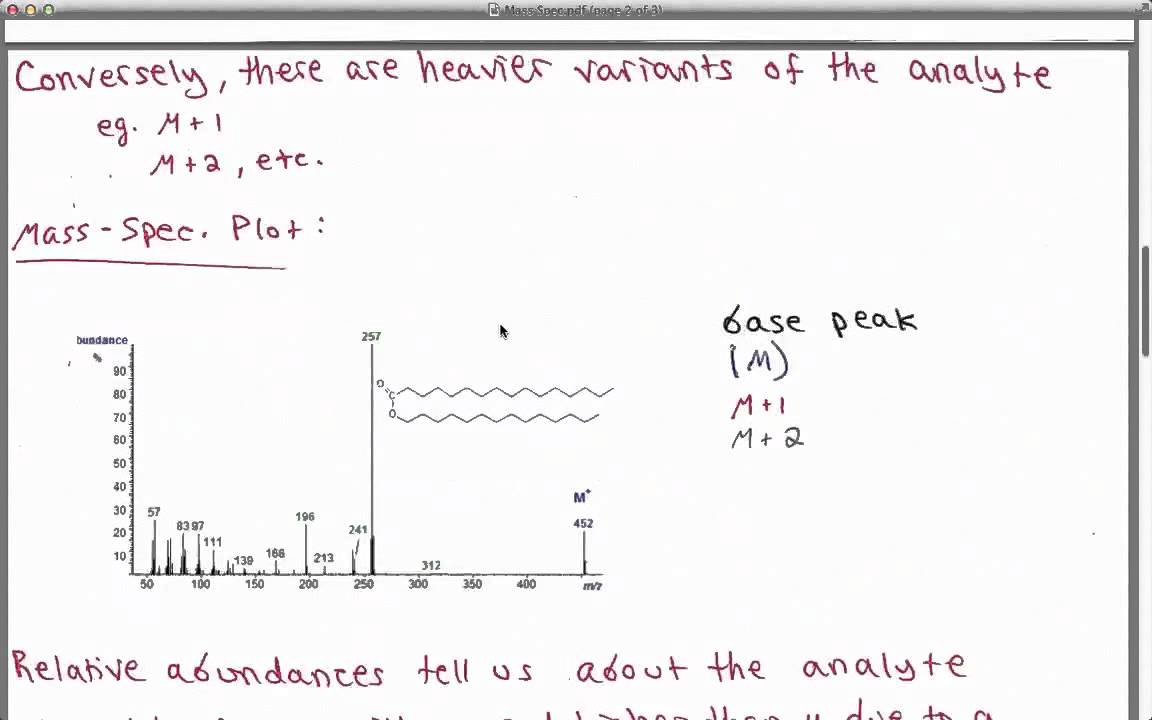 Mass-Spec.pdf (page 2 of 3)
Conversely, there are heavier variants of the analyte
eg. M+1
M+2, etc.
Mass-Spec. Plot:
bundance
90
80
70
60
50
40
30
20
10
257
O
C
O
57
83 97
111
139
166
196
213
241
312
M+
452
50 100 150 200 250 300 350 400 m/z
base peak
(M)
M+1
M+2
Relative abundances tell us about the analyte